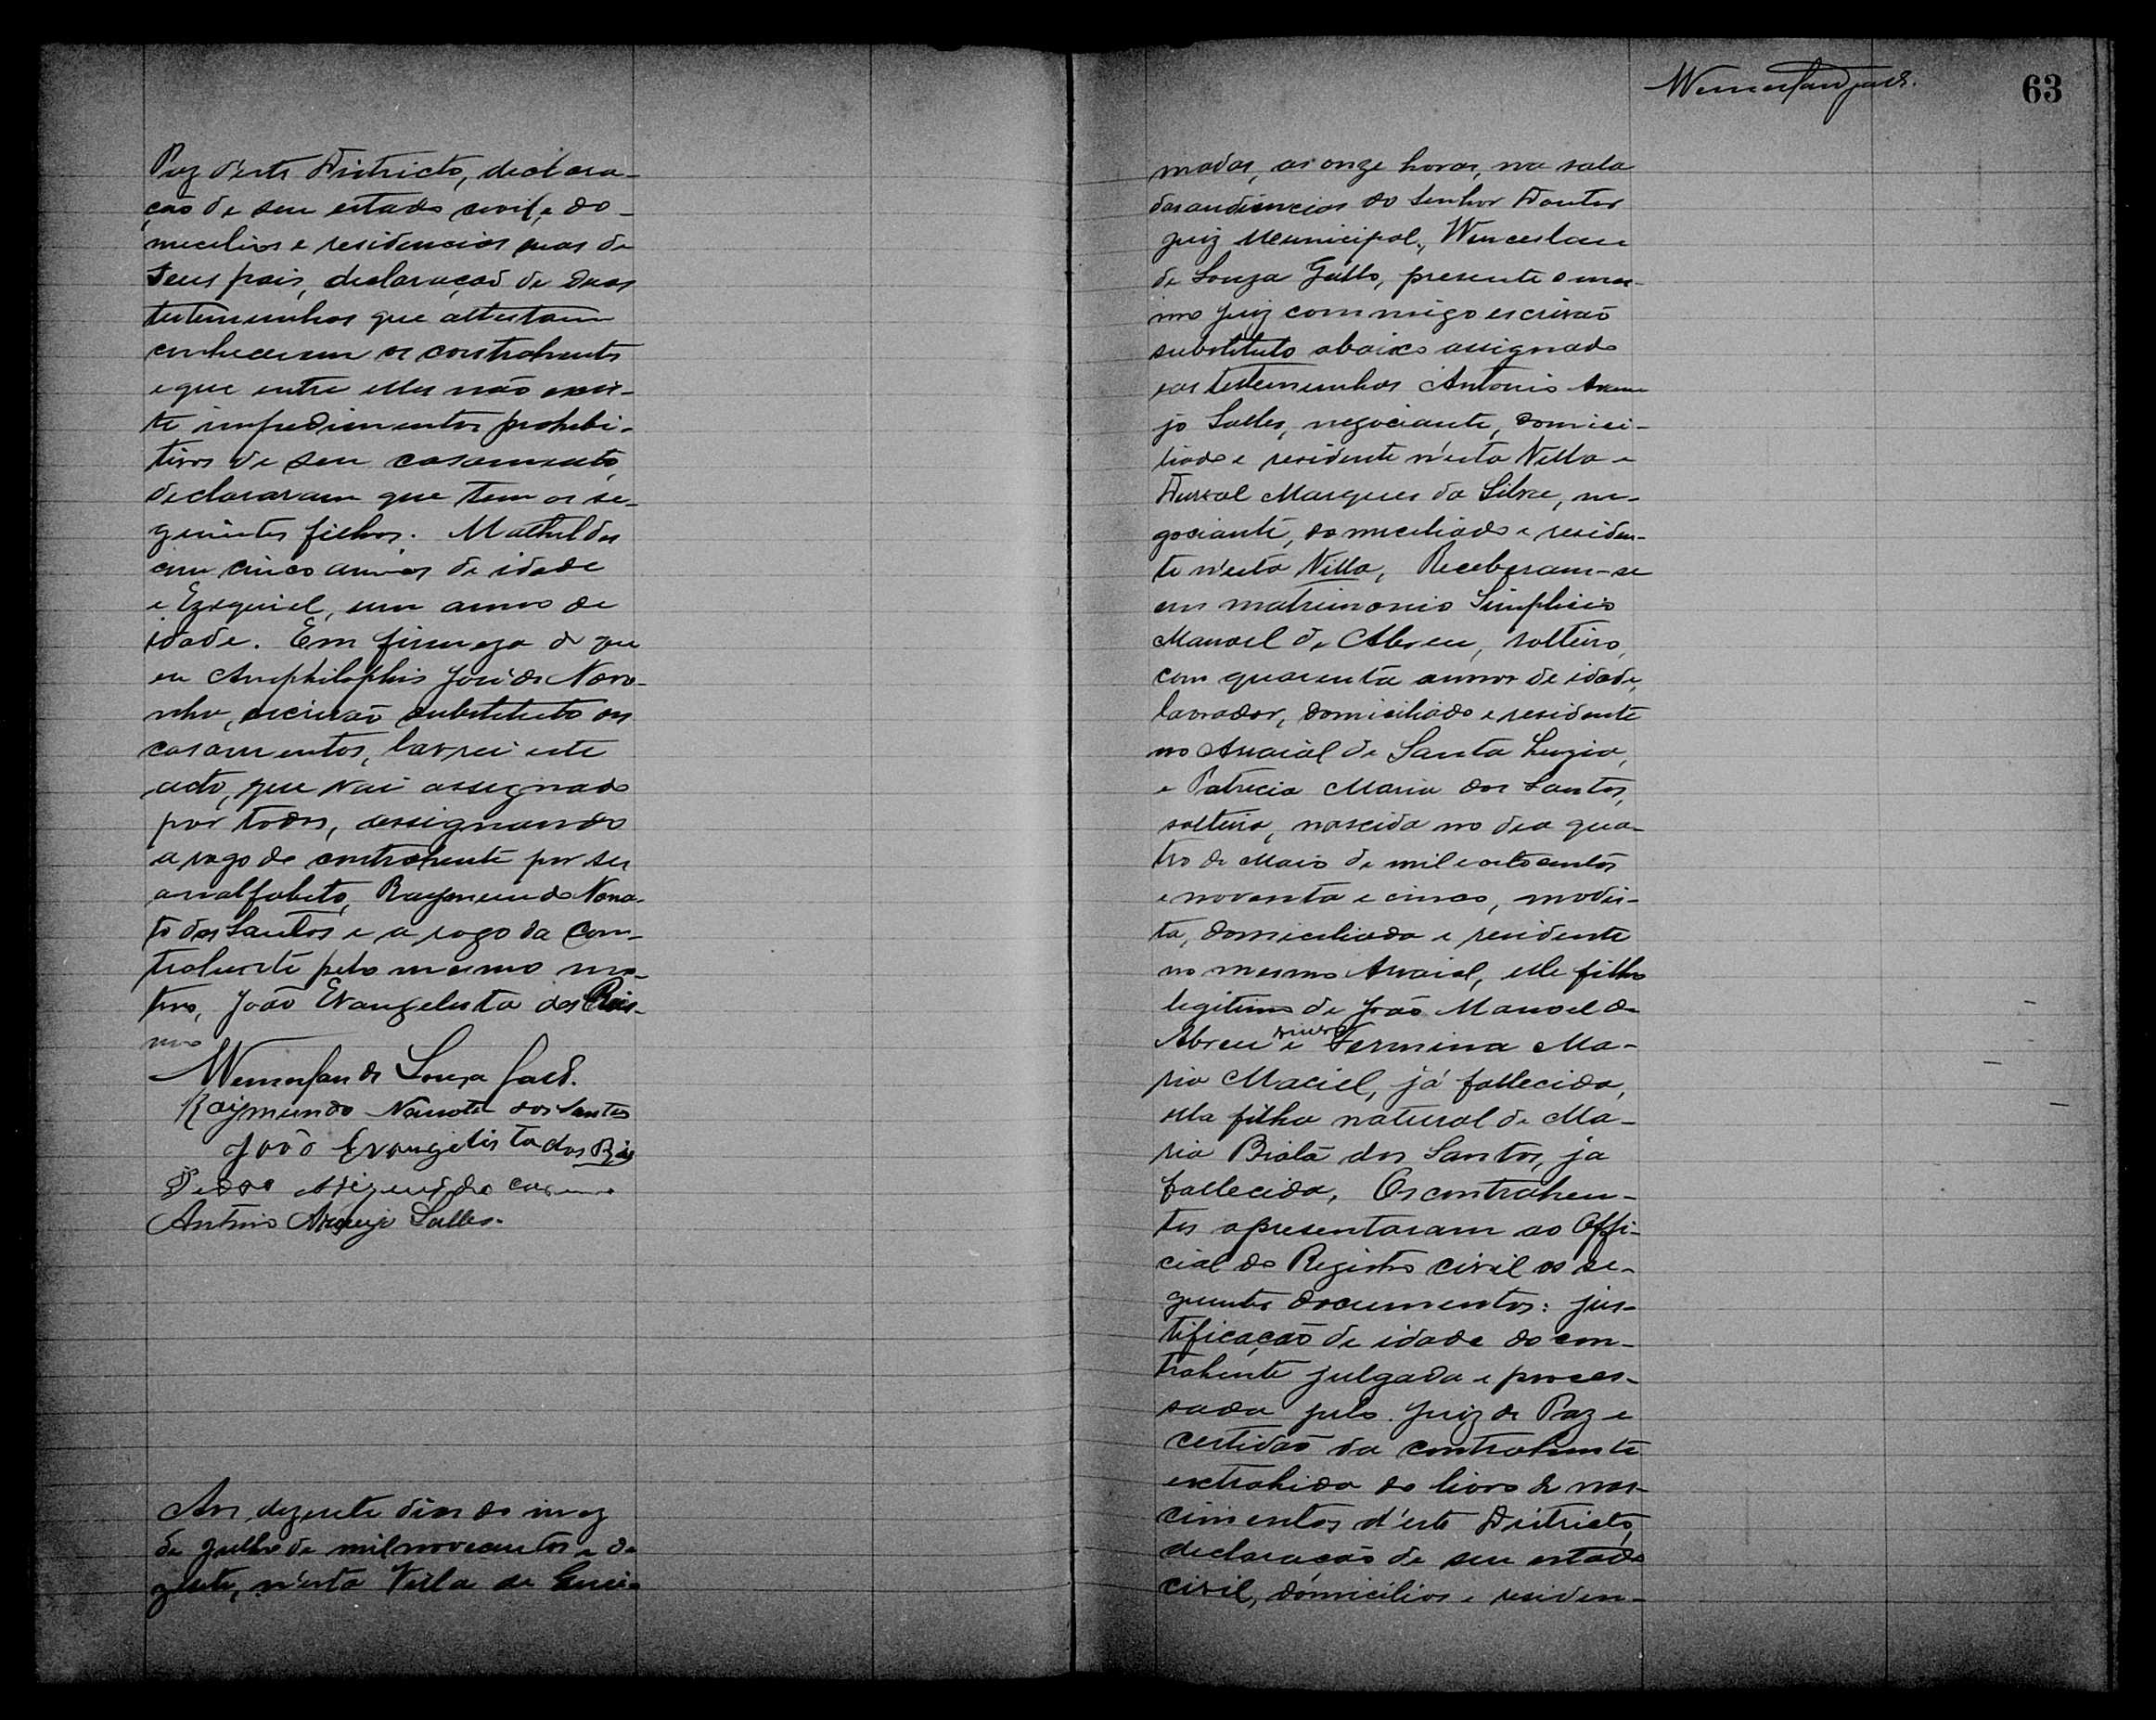 Paz d'este Districto, declara-
ção de seu estado civil, do-
micilios e residencias suas de
seus pais, declaração de duas
testemunhas que attestam
conhecerem os contrahentes
e que entre elles não exis-
te impedimentos prohibi-
tivos de seu casamento,
declararam que tem os se-
guintes filhos: Mathildes
com cinco annos de idade
e Ezequiel, um anno de
idade. Em firmeza do que
eu Amphilophio José de Noro-
nha, escrivão substituto dos
casamentos, lavrei este
acto, que vai assignado
por todos, assignando
a rogo do contrahente por ser
analfabeto, Raymundo Nona-
to dos Santos e a rogo da con-
trahente pelo mesmo mo-
tivo, João Evangelista dos Reis

Wenceslau de Souza
Raymundo Nonato dos Santos
João Evangelista dos Reis
Pedro
Antonio Araujo Salles.
Aos dezesete dias do mez
de Julho de mil novecentos e de
zesete, n'esta Villa de
63
madas, as onze horas, na sala
das audiencias do Senhor Doutor
Juiz Municipal, Wenceslau
de Souza Gallo, presente o mes-
mo Juiz commigo escrivão
substituto abaixo assignado
e as testemunhas Antonio Arau
jo Salles, negociante, domici-
liado e residente n'esta Villa e
Durval Marques da Silva, ne-
gociante, domiciliado e residen-
te n'esta Villa, Receberam-se
em matrimonio Simplicio
Manoel de Abreu, solteiro,
com quarenta annos de idade,
lavrador, domiciliado e residente
no Arraial de Santa Luzia,
e Patricia Maria dos Santos,
solteira, nascida no dia qua-
tro de Maio de mil e oitocentos
e noventa e cinco, modis-
ta, domiciliada e residente
no mesmo Arraial, elle filho
legitimo de João Manoel de
Abreu e Fermina Ma-
ria Maciel, já fallecida,
ella filha natural de Ma-
ria dos Santos, ja
fallecida. Os contrahen-
tes apresentaram ao Offi-
cial do Registro civil os se-
guintes documentos: jus-
tificação de idade do con-
trahente julgada e proces-
sada pelo Juiz de Paz e
certidão da contrahente
extrahida do livro de nas-
cimentos d'este Districto,
declaração de seu estado
civil, domicilios e residen-